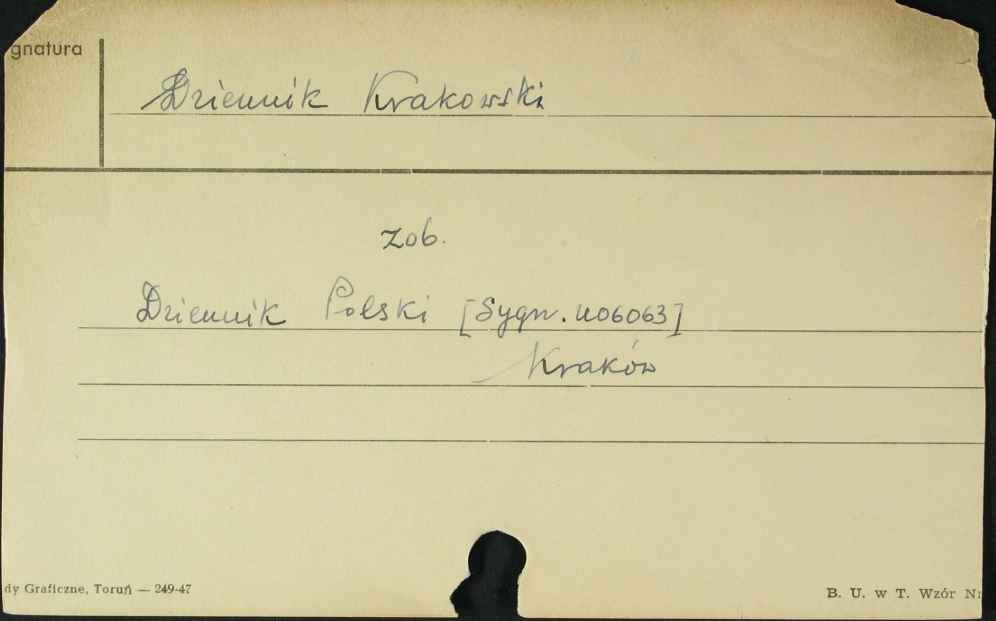 gnatura
Dziennik Krakowski
zob.
Dziennik Polski [Sygn. 406063]
Kraków
dy Graficzne, Toruń — 249-47
B. U. w T. Wzór Nr